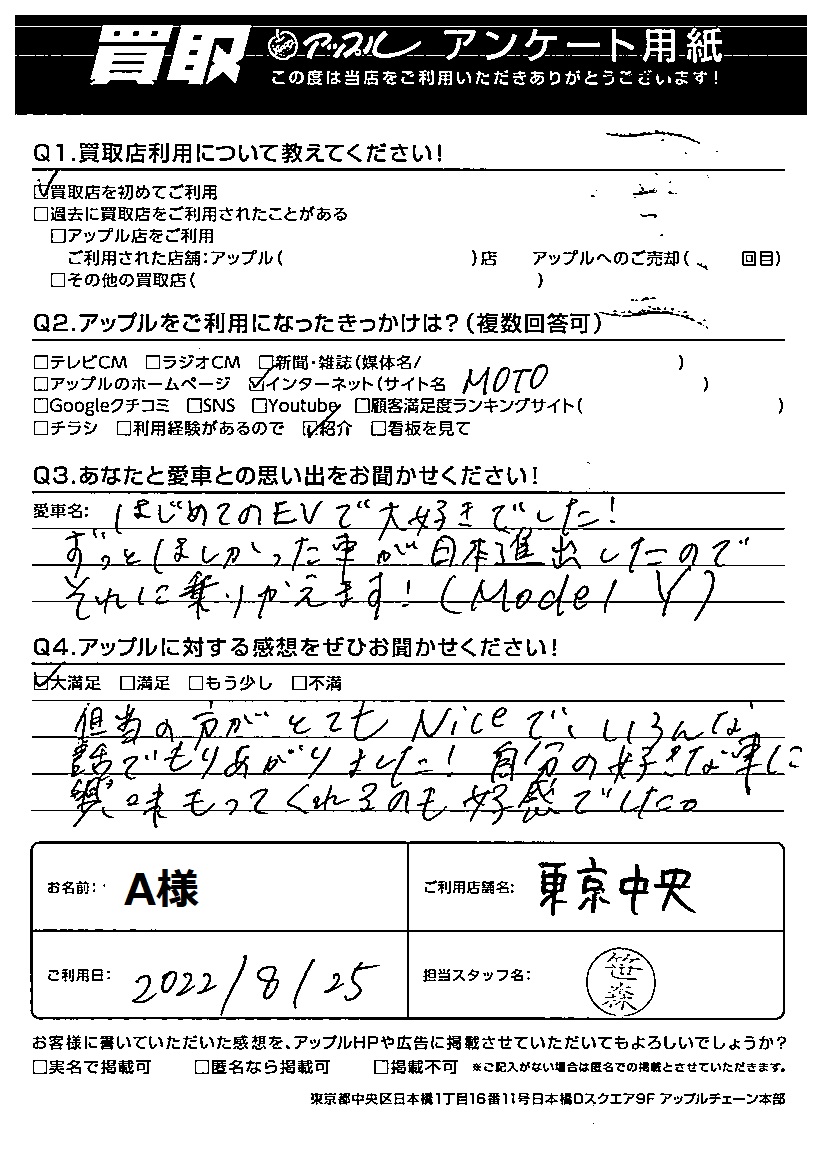 買取 アップル アンケート用紙
この度は当店をご利用いただきありがとうございます!
Q1.買取店利用について教えてください!
☑買取店を初めてご利用
□過去に買取店をご利用されたことがある
□アップル店をご利用
ご利用された店舗:アップル( )店 アップルへのご売却( 回目)
□その他の買取店( )
Q2.アップルをご利用になったきっかけは?(複数回答可)
□テレビCM □ラジオCM □新聞・雑誌(媒体名/ )
□アップルのホームページ ☑インターネット(サイト名 MOTO )
□Googleクチコミ □SNS □Youtube □顧客満足度ランキングサイト( )
□チラシ □利用経験があるので ☑紹介 □看板を見て
Q3.あなたと愛車との思い出をお聞かせください!
愛車名: はじめてのEVで大好きでした!
ずっとほしかった車が日本進出したので
それに乗りかえます! (Model Y)
Q4.アップルに対する感想をぜひお聞かせください!
☑大満足 □満足 □もう少し □不満
担当の方がとてもNiceで、いろんな
話でもりあがりました! 自分の好きな車に
興味もってくれるのも好感でした。
お名前: A様
ご利用店舗名: 東京中央
ご利用日: 2022/8/25
担当スタッフ名: 笹森
お客様に書いていただいた感想を、アップルHPや広告に掲載させていただいてもよろしいでしょうか?
□実名で掲載可 □匿名なら掲載可 □掲載不可 ※ご記入がない場合は匿名での掲載とさせていただきます。
東京都中央区日本橋1丁目16番11号日本橋Dスクエア9F アップルチェーン本部